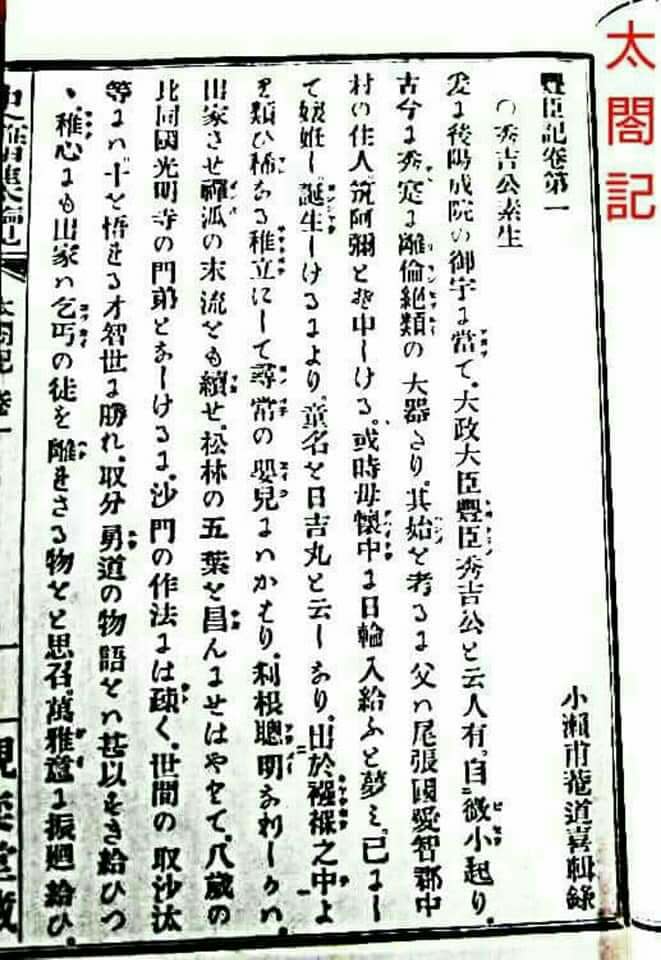 太閤記
豐臣記卷第一
小瀬甫菴道喜輯錄
○秀吉公素生
爰に後陽成院の御宇に當て、大政大臣豐臣秀吉公と云人有。自微小起り。
古今に秀寔に離倫絕類の大器たり。其始を考るに父ハ尾張國愛智郡中
村の住人、筑阿彌とぞ申しける。或時母懷中に日輪入給ふと夢ミ、已にし
て娠妊し誕生しけるにより、童名を日吉丸と云しなり。出於襁褓之中よ
り類ひ稀なる稚立にして尋常の嬰兒にハかはり、利根聰明なりしかハ、
出家させ禪派の末流をも續せ、松林の五葉を昌んにせはやとて、八歳の
比同國光明寺の門弟となしけるに、沙門の作法には疎く、世間の取沙汰
等にハ十を悟れる才智世に勝れ、取分勇道の物語とハ甚以すき給ひつ
ヽ、稚心にも出家ハ乞丐の徒を離れさる物をと思召、萬雅意に振廻給ひ、
太閤記 卷一
一